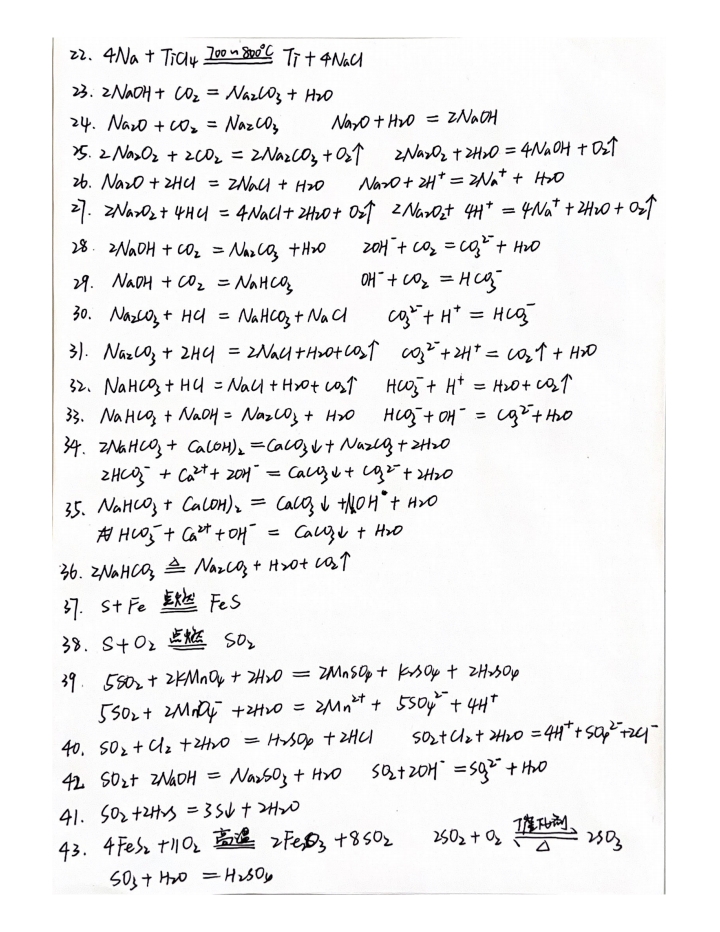 22. 4Na + TiCl₄ 700~800℃ Ti + 4NaCl
23. 2NaOH + CO₂ = Na₂CO₃ + H₂O
24. Na₂O + CO₂ = Na₂CO₃ Na₂O + H₂O = 2NaOH
25. 2Na₂O₂ + 2CO₂ = 2Na₂CO₃ + O₂↑ 2Na₂O₂ + 2H₂O = 4NaOH + O₂↑
26. Na₂O + 2HCl = 2NaCl + H₂O Na₂O + 2H⁺ = 2Na⁺ + H₂O
27. 2Na₂O₂ + 4HCl = 4NaCl + 2H₂O + O₂↑ 2Na₂O₂ + 4H⁺ = 4Na⁺ + 2H₂O + O₂↑
28. 2NaOH + CO₂ = Na₂CO₃ + H₂O 2OH⁻ + CO₂ = CO₃²⁻ + H₂O
29. NaOH + CO₂ = NaHCO₃ OH⁻ + CO₂ = HCO₃⁻
30. Na₂CO₃ + HCl = NaHCO₃ + NaCl CO₃²⁻ + H⁺ = HCO₃⁻
31. Na₂CO₃ + 2HCl = 2NaCl + H₂O + CO₂↑ CO₃²⁻ + 2H⁺ = CO₂↑ + H₂O
32. NaHCO₃ + HCl = NaCl + H₂O + CO₂↑ HCO₃⁻ + H⁺ = H₂O + CO₂↑
33. NaHCO₃ + NaOH = Na₂CO₃ + H₂O HCO₃⁻ + OH⁻ = CO₃²⁻ + H₂O
34. 2NaHCO₃ + Ca(OH)₂ = CaCO₃↓ + Na₂CO₃ + 2H₂O
2HCO₃⁻ + Ca²⁺ + 2OH⁻ = CaCO₃↓ + CO₃²⁻ + 2H₂O
35. NaHCO₃ + Ca(OH)₂ = CaCO₃↓ + OH + H₂O
HCO₃⁻ + Ca²⁺ + OH⁻ = CaCO₃↓ + H₂O
36. 2NaHCO₃ △ Na₂CO₃ + H₂O + CO₂↑
37. S + Fe 点燃 FeS
38. S + O₂ 点燃 SO₂
39. 5SO₂ + 2KMnO₄ + 2H₂O = 2MnSO₄ + K₂SO₄ + 2H₂SO₄
5SO₂ + 2MnO₄⁻ + 2H₂O = 2Mn²⁺ + 5SO₄²⁻ + 4H⁺
40. SO₂ + Cl₂ + 2H₂O = H₂SO₄ + 2HCl SO₂ + Cl₂ + 2H₂O = 4H⁺ + SO₄²⁻ + 2Cl⁻
42. SO₂ + 2NaOH = Na₂SO₃ + H₂O SO₂ + 2OH⁻ = SO₃²⁻ + H₂O
41. SO₂ + 2H₂S = 3S↓ + 2H₂O
43. 4FeS₂ + 11O₂ 高温 2Fe₂O₃ + 8SO₂ 2SO₂ + O₂ 催化剂 △ 2SO₃
SO₃ + H₂O = H₂SO₄